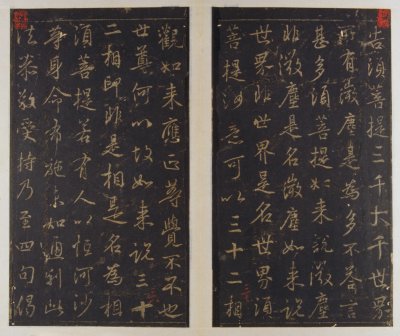 告須菩提三千大千世界
所有微塵是為多不答言
甚多須菩提如来說微塵
非微塵是名微塵如来說
世界非世界是名世界須
菩提意可以三十二相
觀如来應正等覺不不也
世尊何以故如来說三十
二相即非是相是名為相
須菩提若有人以恒河沙
等身命布施不如此
法恭敬受持乃至四句偈